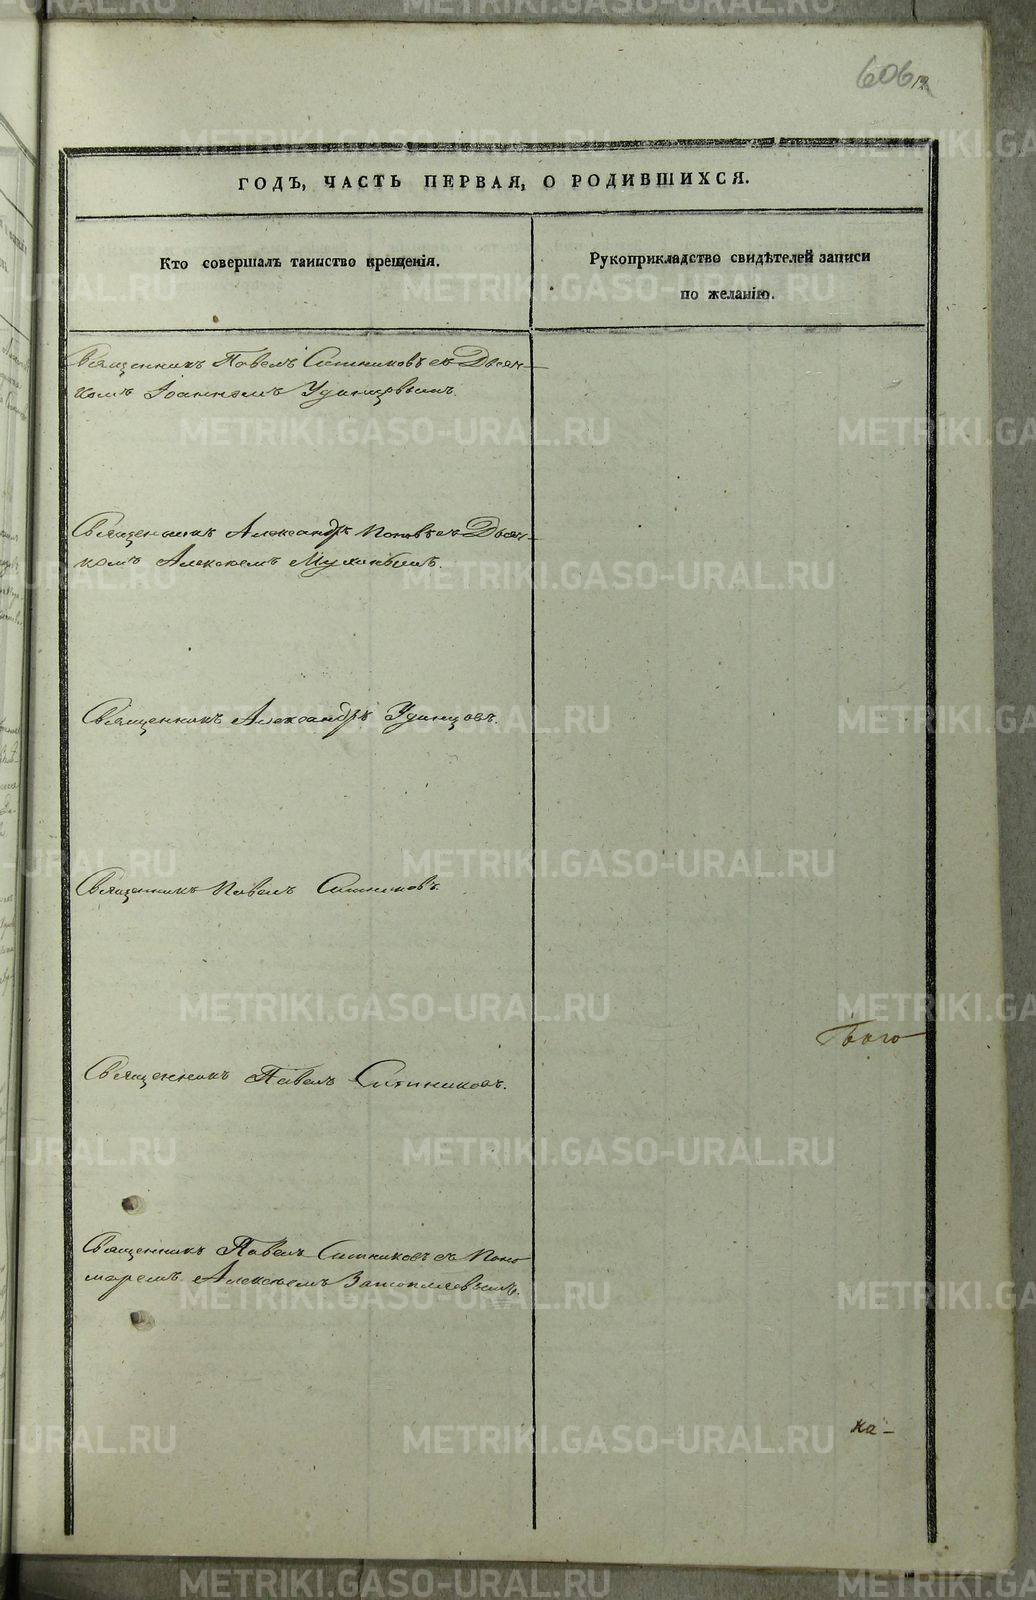 606
ГОДЪ, ЧАСТЬ ПЕРВАЯ, О РОДИВШИХСЯ.
Кто совершалъ таинство крещенія.
Рукоприкладство свидѣтелей записи
по желанію.
Священникъ Павелъ Ситниковъ съ Дьяч-
комъ Іоанномъ Удинцовымъ.
Священникъ Александръ Поповъ съ Дьяч-
комъ Алексѣемъ
Священникъ Александръ Удинцовъ.
Священникъ Павелъ Ситниковъ.
Священникъ Павелъ Ситниковъ.
Священникъ Павелъ Ситниковъ съ Поно
маремъ Алексѣемъ Затопляевымъ.
ка-
METRIKI.GASO-URAL.RU